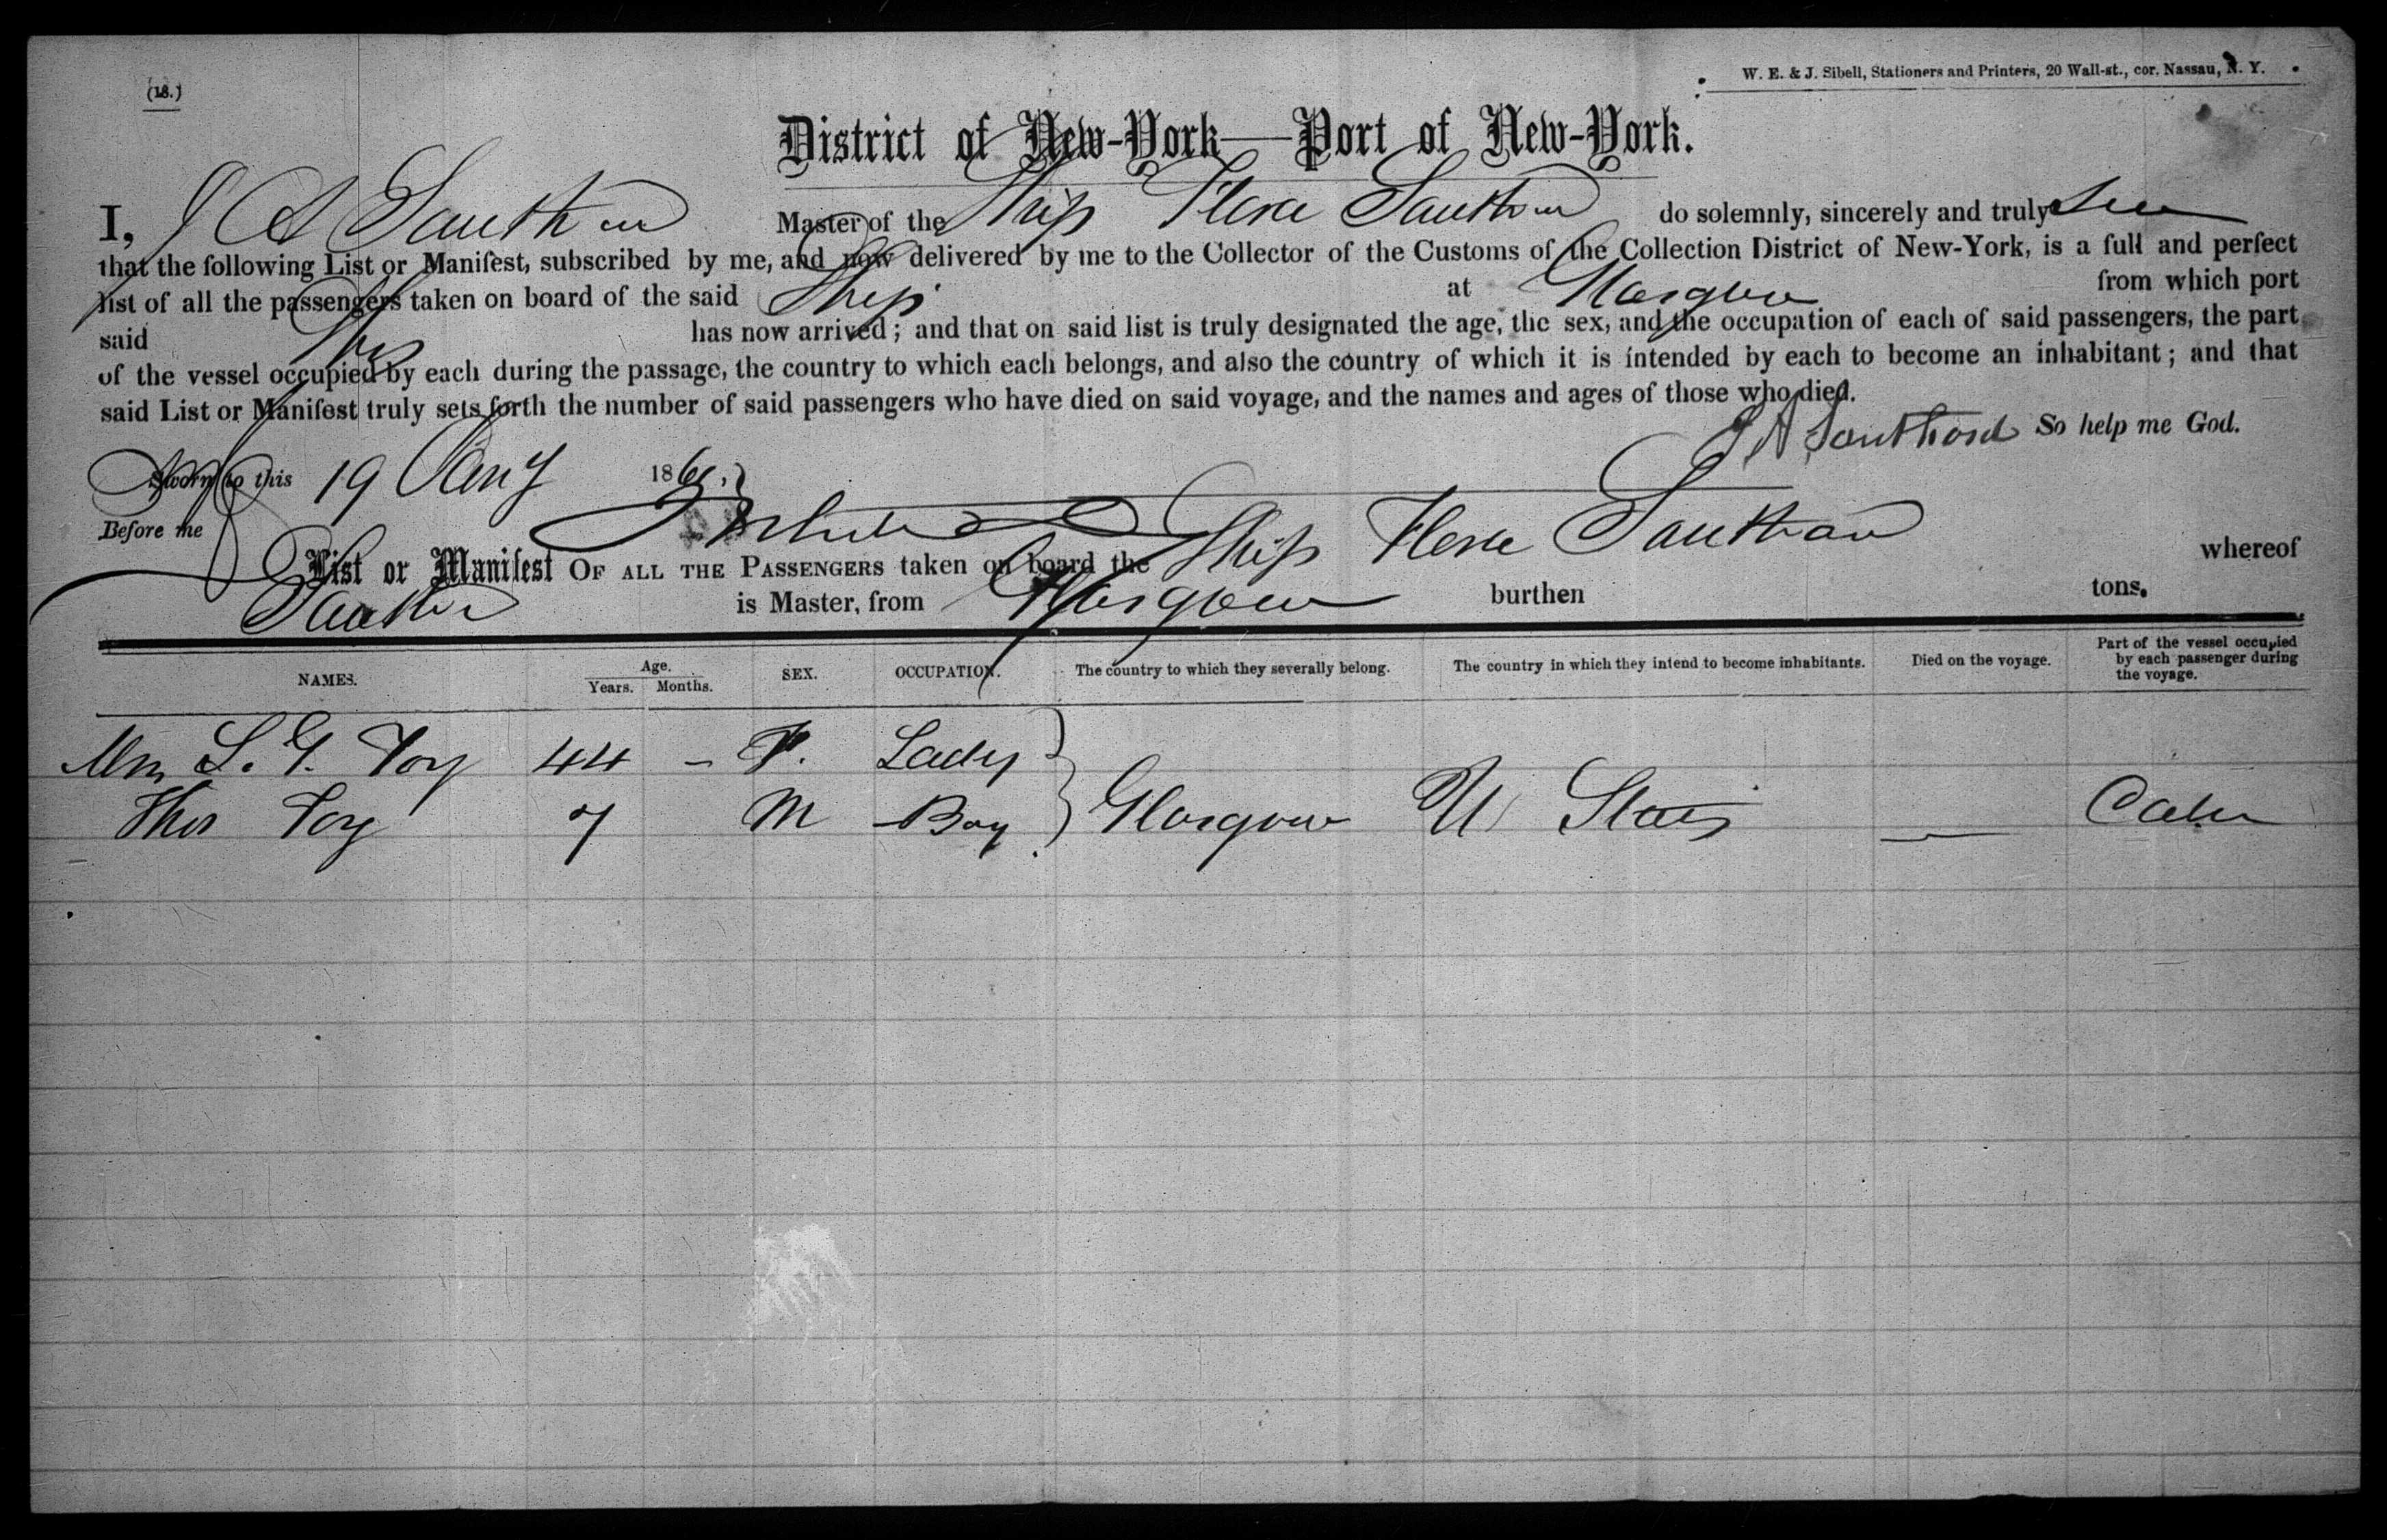 (18.)
W. E. & J. Sibell, Stationers and Printers, 20 Wall-st., cor. Nassau, N. Y.
District of New-York—Port of New-York.
I, J A Southard Master of the Ship Flora Southard do solemnly, sincerely and truly
that the following List or Manifest, subscribed by me, and now delivered by me to the Collector of the Customs of the Collection District of New-York, is a full and perfect
list of all the passengers taken on board of the said Ship at Glasgow from which port
said Ship has now arrived; and that on said list is truly designated the age, the sex, and the occupation of each of said passengers, the part
of the vessel occupied by each during the passage, the country to which each belongs, and also the country of which it is intended by each to become an inhabitant; and that
said List or Manifest truly sets forth the number of said passengers who have died on said voyage, and the names and ages of those who died.
J A Southard So help me God.
Sworn to this 19 Jany 186
Before me
List or Manifest OF ALL THE PASSENGERS taken on board the Ship Flora Southard whereof
Southard is Master, from Glasgow burthen tons.
NAMES. Age. Years. Months. SEX. OCCUPATION. The country to which they severally belong. The country in which they intend to become inhabitants. Died on the voyage. Part of the vessel occupied by each passenger during the voyage.
Mrs L. G. Foy 44 - F. Lady
Thos Foy 7 M Boy Glasgow U States — Cabin